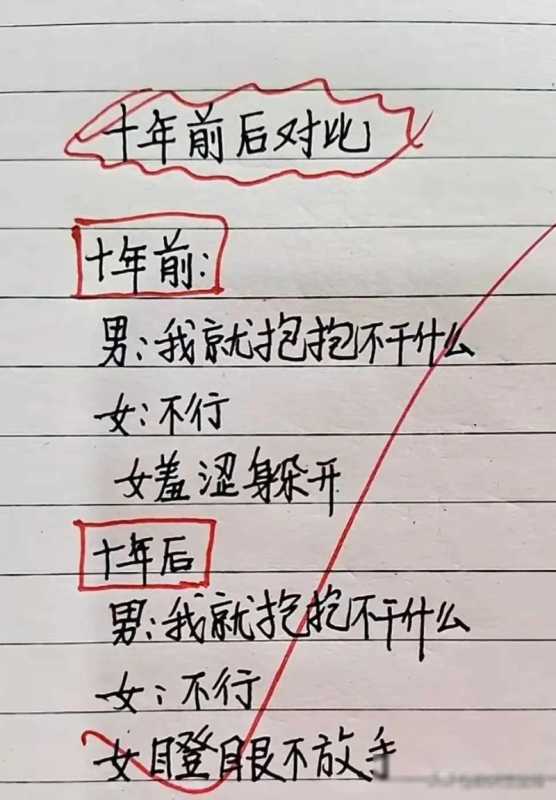 十年前后对比
十年前:
男:我就抱抱不干什么
女:不行
女羞涩躲开
十年后
男:我就抱抱不干什么
女:不行
女瞪眼不放手